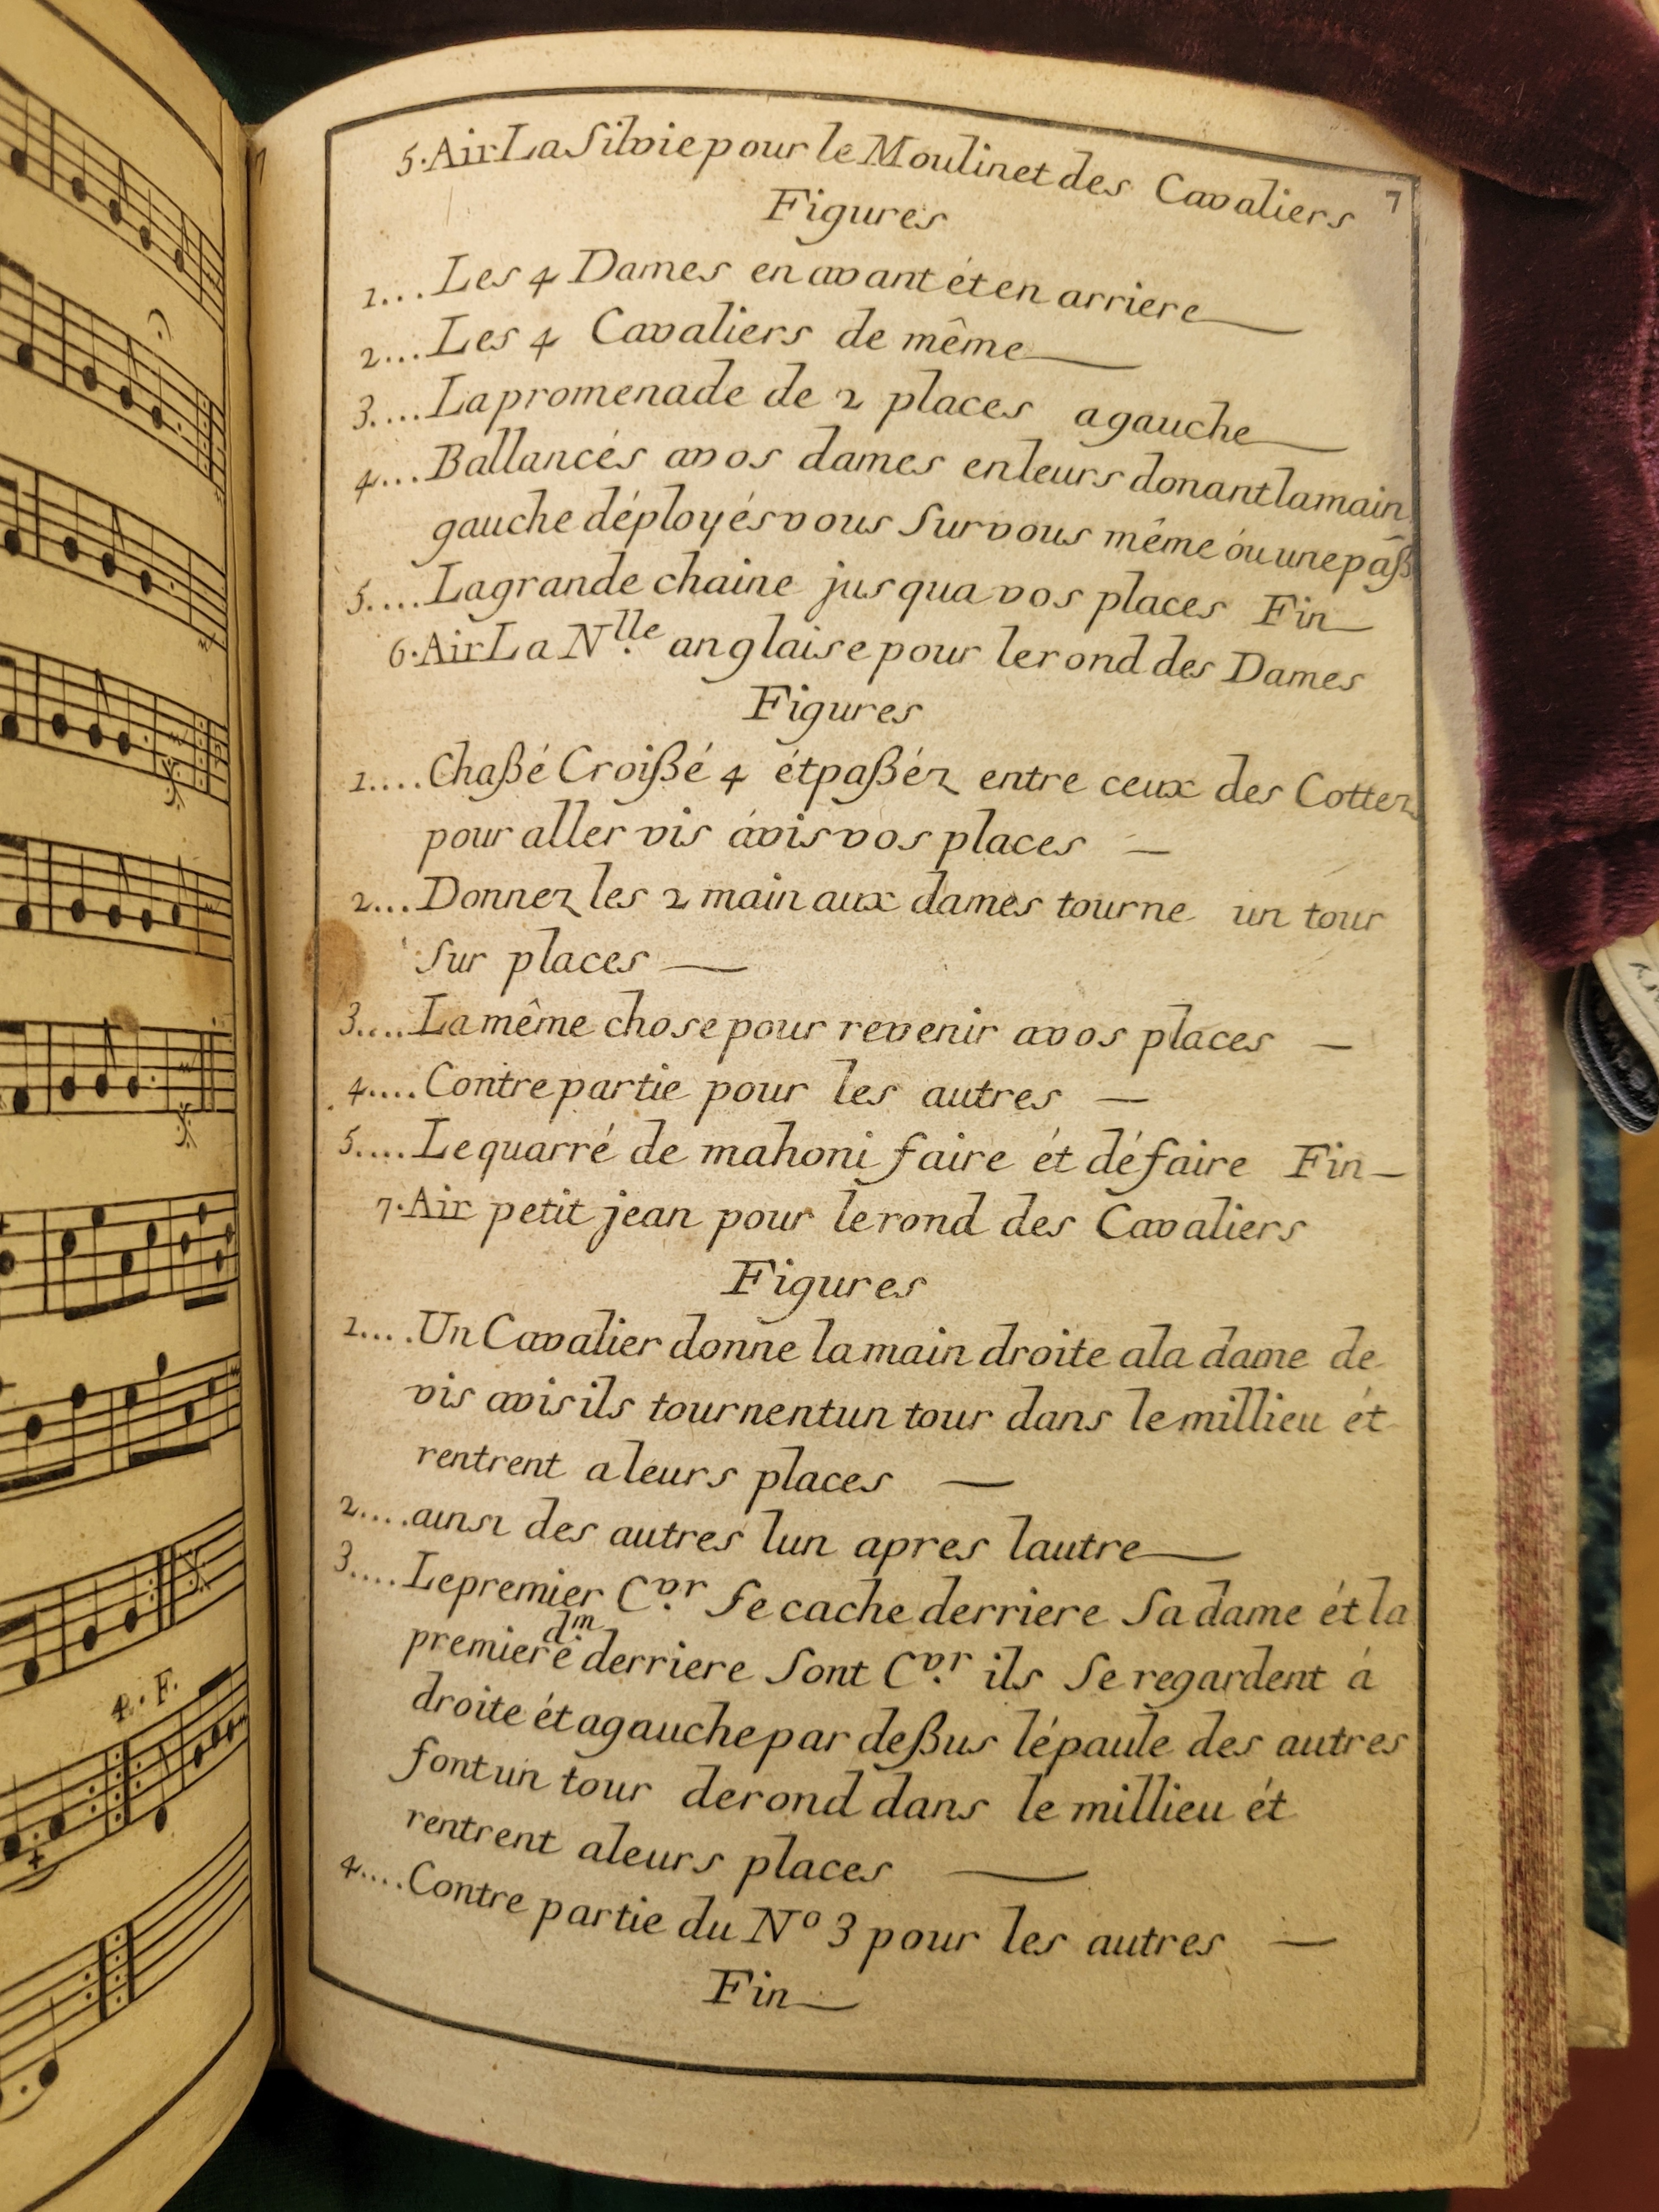 7
5. Air La Silvie pour le Moulinet des Cavaliers
Figures
1... Les 4 Dames en avant ét en arriere
2... Les 4 Cavaliers de même
3.... La promenade de 2 places a gauche
4... Ballancés a vos dames en leurs donant la main
gauche déployés vous Sur vous même óu une pass
5.... La grande chaine jus qua vos places Fin
6. Air La N.lle anglaise pour le rond des Dames
Figures
1.... Chaßé Croißé 4 ét paßéz entre ceux des Cottez
pour aller vis ávis vos places
2... Donnez les 2 main aux dames tourne un tour
Sur places
3.... La même chose pour revenir a vos places
4.... Contre partie pour les autres
5.... Le quarré de mahoni faire ét défaire Fin
7. Air petit jean pour le rond des Cavaliers
Figures
1.... Un Cavalier donne la main droite a la dame de
vis avis ils tournent un tour dans le millieu ét
rentrent a leurs places
2.... ainsi des autres lun apres lautre
3.... Le premier C.vr Se cache derriere Sa dame ét la
premiere d.m derriere Sont C.vr ils Se regardent á
droite ét a gauche par deßus lépaule des autres
font un tour de rond dans le millieu ét
rentrent a leurs places
4.... Contre partie du No 3 pour les autres
Fin
P. F.